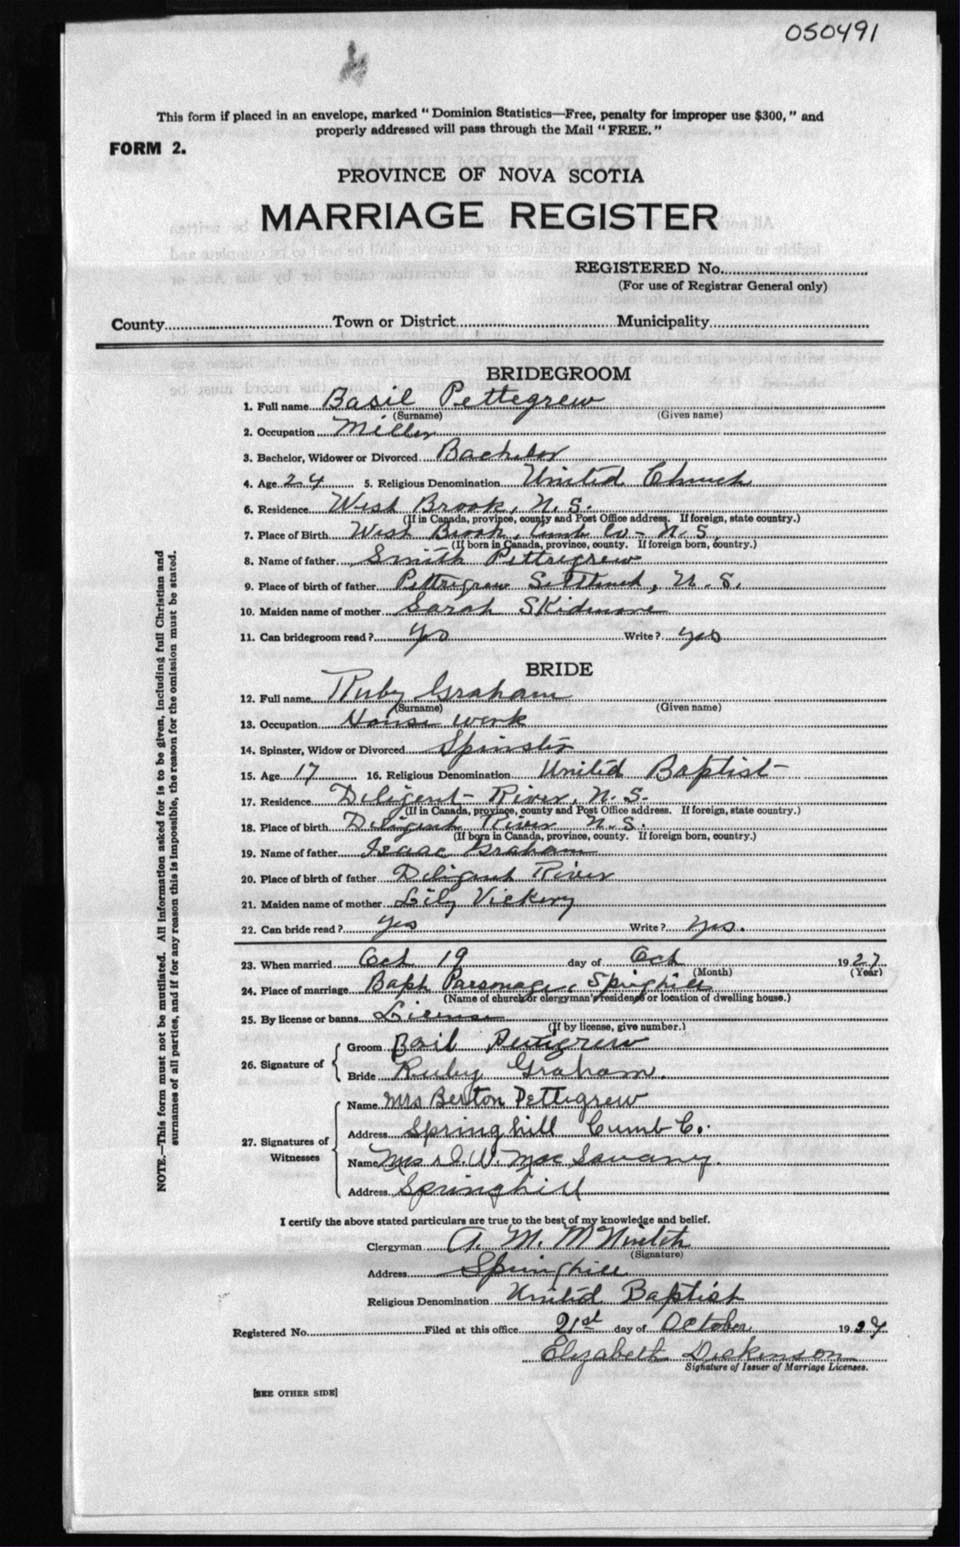 050491
This form if placed in an envelope, marked "Dominion Statistics—Free, penalty for improper use $300," and
properly addressed will pass through the Mail "FREE."
FORM 2.
PROVINCE OF NOVA SCOTIA
MARRIAGE REGISTER
REGISTERED No.
(For use of Registrar General only)
County Town or District Municipality
BRIDEGROOM
1. Full name Basil Pettegrew
(Surname) (Given name)
2. Occupation Miller
3. Bachelor, Widower or Divorced Bachelor
4. Age 24 5. Religious Denomination United Church
6. Residence West Brook, N.S.
(If in Canada, province, county and Post Office address. If foreign, state country.)
7. Place of Birth West Brook, Cumb Co- N.S.
(If born in Canada, province, county. If foreign born, country.)
8. Name of father Smith Pettigrew
9. Place of birth of father Pettigrew Settlment, N.S.
10. Maiden name of mother Sarah Skidmore
11. Can bridegroom read? Yes Write? yes
BRIDE
12. Full name Ruby Graham
(Surname) (Given name)
13. Occupation House work
14. Spinster, Widow or Divorced Spinster
15. Age 17 16. Religious Denomination United Baptist
17. Residence Diligent River, N.S.
(If in Canada, province, county and Post Office address. If foreign, state country.)
18. Place of birth Diligent River N.S.
(If born in Canada, province, county. If foreign born, country.)
19. Name of father Isaac Graham
20. Place of birth of father Diligent River
21. Maiden name of mother Lily Vickery
22. Can bride read? Yes Write? Yes.
23. When married Oct 19 day of Oct 1927
(Month) (Year)
24. Place of marriage Bapt Parsonage, Springhill
(Name of church or clergyman's residence or location of dwelling house.)
25. By license or banns License
(If by license, give number.)
26. Signature of Groom Basil Pettigrew
Bride Ruby Graham.
27. Signatures of Witnesses Name Mrs Berton Pettigrew
Address Springhill Cumb Co.
Name Mrs I. W. Mac
Address Springhill
I certify the above stated particulars are true to the best of my knowledge and belief.
Clergyman A. M. McNintch
(Signature)
Address Springhill
Religious Denomination United Baptist
Registered No. Filed at this office 21st day of October 1927
Elizabeth Dickinson
Signature of Issuer of Marriage Licenses.
[SEE OTHER SIDE]
NOTE.—This form must not be mutilated. All information asked for is to be given, including full Christian and
surnames of all parties, and if for any reason this is impossible, the reason for the omission must be stated.